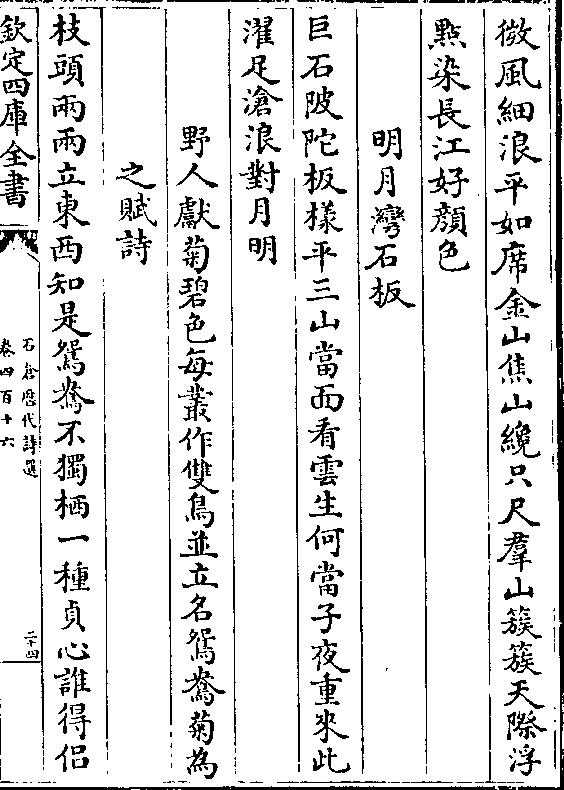 微風細浪平如席金山焦山纔只尺羣山簇簇天際浮
點染長江好顔色
明月灣石板
巨石陂陀板樣平三山當面看雲生何當子夜重來此
濯足滄浪對月明
野人獻菊碧色每叢作雙鳥並立名鴛鴦菊為
之賦詩
枝頭兩兩立東西知是鴛鴦不獨栖一種貞心誰得侣
欽定四庫全書
石倉歷代詩選
卷四百十六
二十四